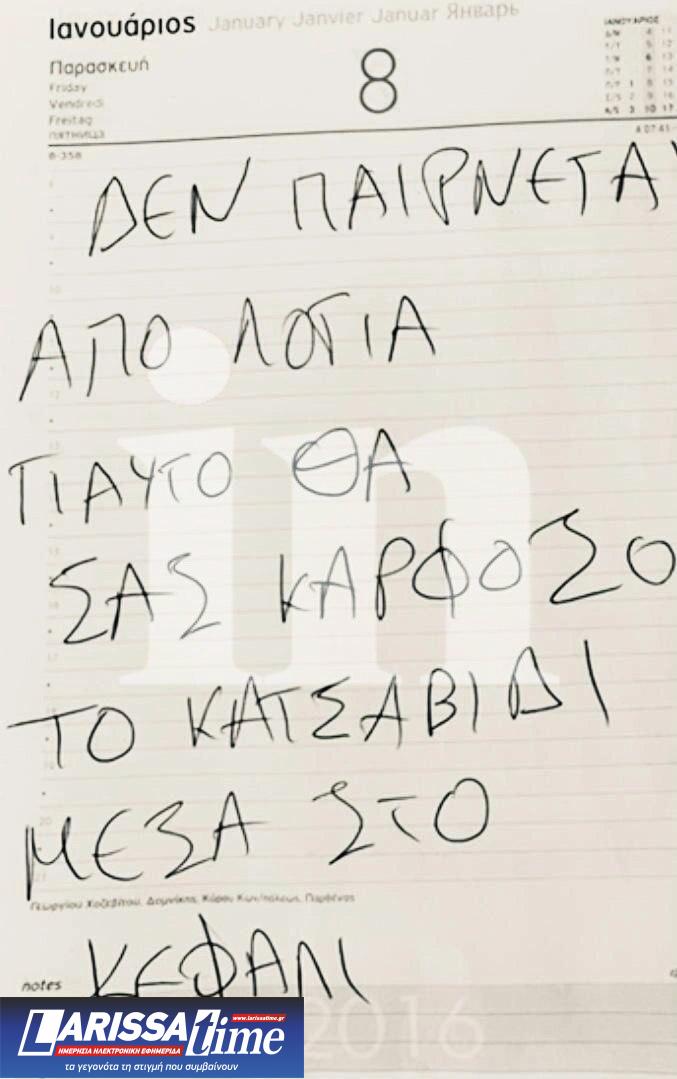 Ιανουάριος January Janvier Januar Январь
Παρασκευή
Friday
Vendredi
Freitag
ПЯТНИЦА
8
ΙΑΝΟΥΑΡΙΟΣ
8-358
ΔΕΝ ΠΑΙΡΝΕΤΑΙ
ΑΠΟ ΛΟΓΙΑ
ΓΙΑΥΤΟ ΘΑ
ΣΑΣ ΚΑΡΦΟΣΟ
ΤΟ ΚΑΤΣΑΒΙΔΙ
ΜΕΣΑ ΣΤΟ
in
Γεωργίου Χοζεβίτου, Δομνίκης, Κύρου Κων/πόλεως, Παρθένας
ΚΕΦΑΛΙ
notes
2016
LARISSAtime
www.larissatime.gr
ΗΜΕΡΗΣΙΑ ΗΛΕΚΤΡΟΝΙΚΗ ΕΦΗΜΕΡΙΔΑ
τα γεγονότα τη στιγμή που συμβαίνουν